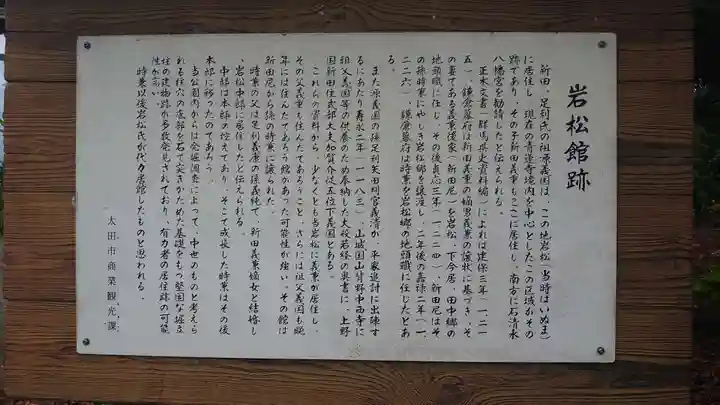 岩松館跡
新田、足利氏の祖源義国は、この地岩松(当時はいぬま)
に居住し、現在の青蓮寺境内を中心としたこの区域がその
跡であり、その子新田義重もここに居住し、南方に石清水
八幡宮を勧請したと伝えられる。
正木文書(群馬県史資料編)によれば建保三年(一二一
五)、鎌倉幕府は新田義重の嫡男義兼の譲状に基づき、そ
の妻である義兼後家(新田尼)を岩松、下今居、田中郷の
地頭職に任じ、その後貞応三年(一二二四)、新田尼はそ
の孫時兼にやしき岩松郷を譲渡し、二年後の嘉禄二年(一
二二六)、鎌倉幕府は時兼を岩松郷の地頭職に任じたとあ
る。
また源義国の孫足利矢田判官義清が、平家追討に出陣す
るにあたり寿永二年(一一八三)、山城国山背野中西寺に
祖父義国等の供養のため奉納した大般若経の奥書に、上野
国新田住式部大夫加賀介従五位下義国とある。
これらの資料から、少なくとも当岩松に義兼が居住し、
その父義重も住んでいたであろうこと、さらには祖父義国も晩
年には住んでいたであろう館があった可能性が強い。その館は
新田尼から孫の時兼に譲られた。
時兼の父は足利義康の孫義純で、新田義兼嫡女と結婚し
、岩松中郷に居住したと伝えられる。
中郷は本郷の控えであり、そこで成長した時兼はその後
本郷に移ったのであろう。
当公園内からは発掘調査によって、中世のものと考えら
れる柱穴の底部を石で突きかためた基礎をもつ堅固な堀立
柱の建物跡が多数発見されており、有力者の居住跡の可能
性が高い。
時兼以後岩松氏が代々居館したものと思われる。
太田市商業観光課